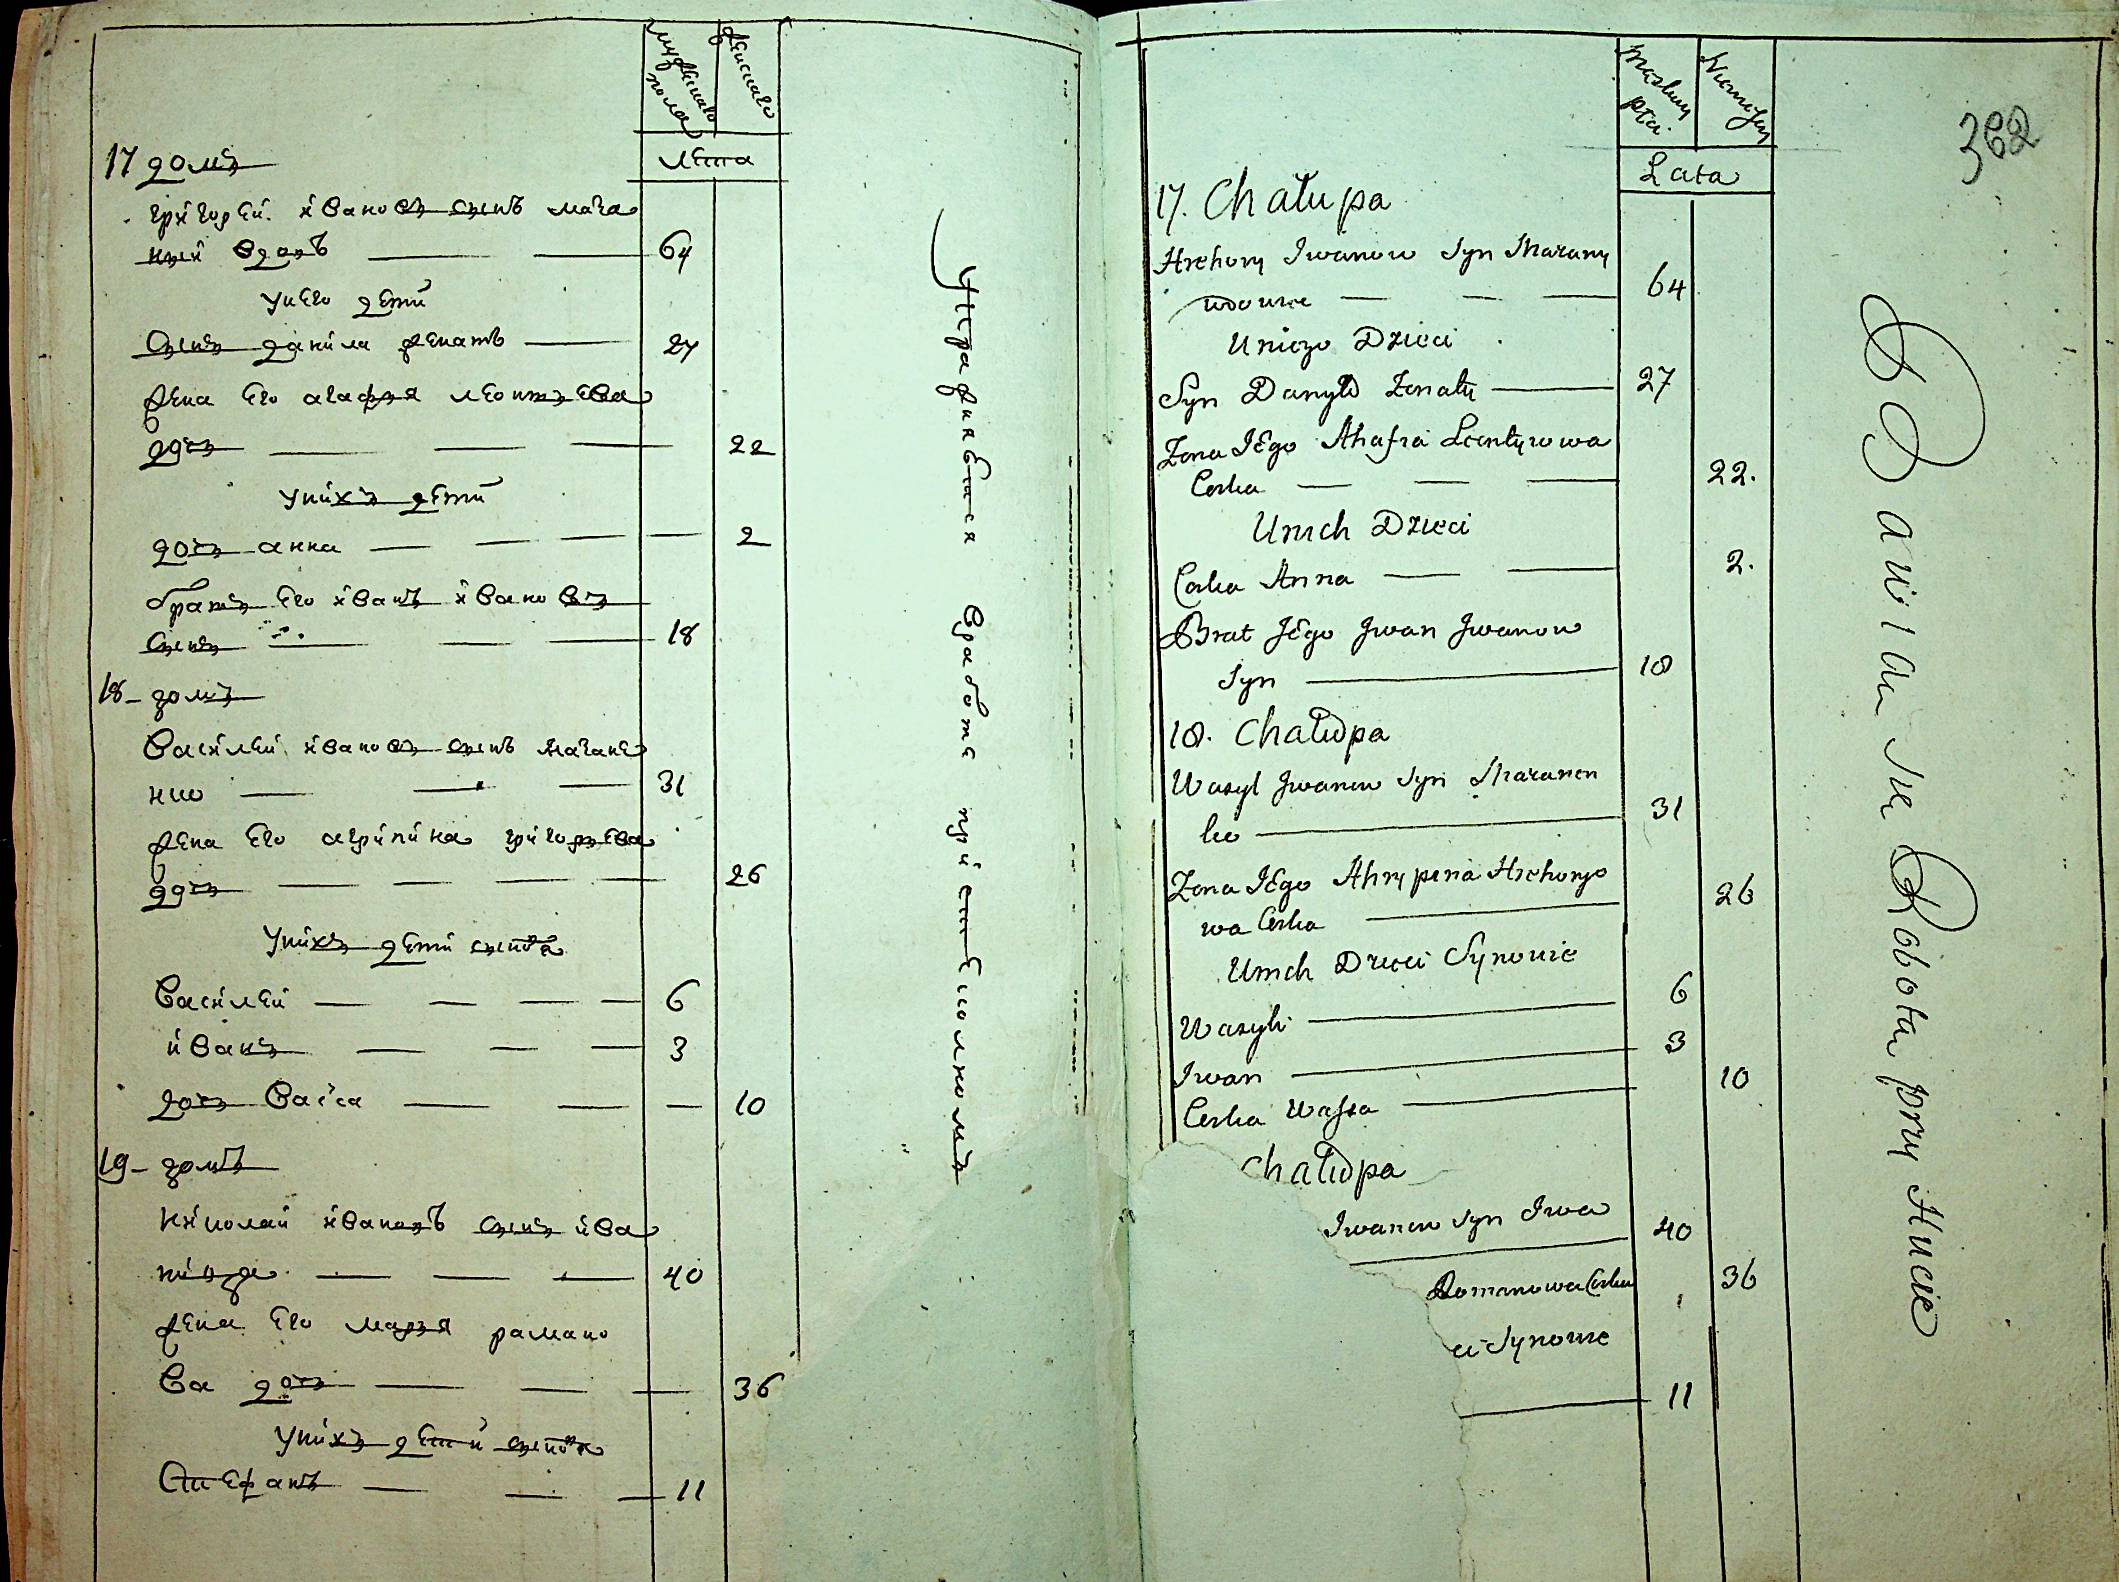 мужеска пола
женскаго
лета
17 домъ
григорей ивановъ сынъ мага
ный вдовъ 64
у него дети
сынъ данила женатъ 27
жена его агафья леонтьева
дочь 22
у нихъ дети
дочь анна 2
братъ его иванъ ивановъ
сынъ 18
18 домъ
василей ивановъ сынъ магане
нко 31
жена его агрипина григорьева
дочь 26
у нихъ дети сынова
василей 6
иванъ 3
дочь васса 10
19 домъ
николай ивановъ сынъ ива
40
жена его марья рамано
ва дочь 36
у нихъ дети сынова
стефанъ 11
упражняется в работе при
362
Lata
17. Chałupa
Hrehory Iwanow Syn
wdowiec 64
Uniego Dzieci
Syn Danyło Żonaty 27
Żona Jego Ahafia
Corka 22.
Unich Dzieci
Corka Anna 2.
Brat Jego Jwan Jwanow
Syn 18
18. Chałupa
Wasyl Jwanow Syn
ko 31
Żona Jego Ahrypina Hrehoryo
wa Corka 26
Unich Dzieci Synowie
Wasyli 6
Iwan 3
Corka Wassa 10
Chałupa
Iwanow Syn Iwa
40
Romanowa Corka 36
ci Synowie
11
Bawią się Robotą przy Hucie